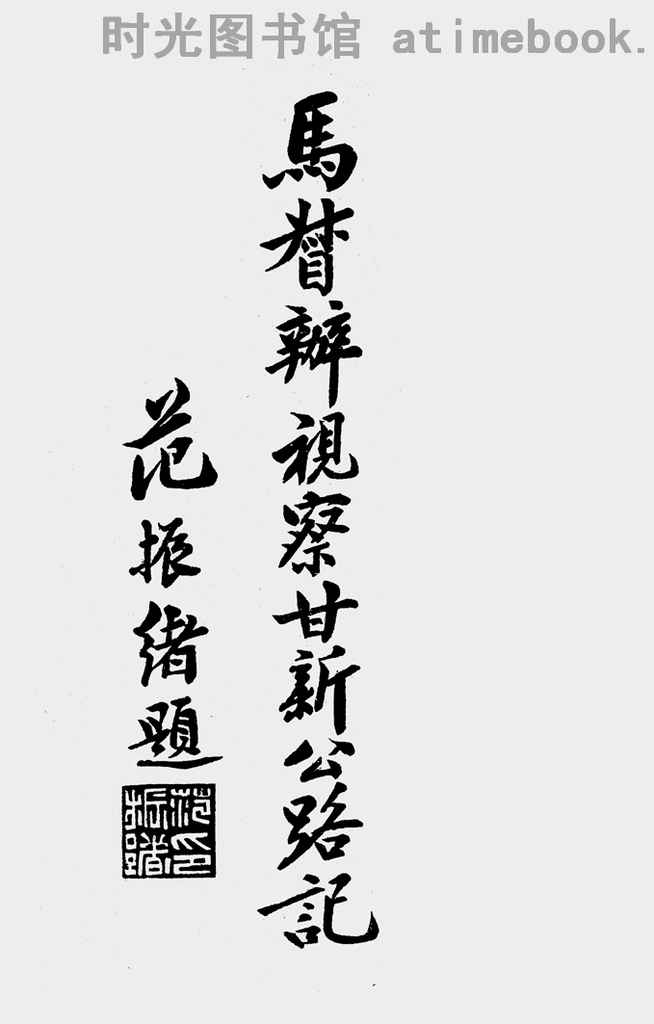 时光图书馆 atimebook.
馬督辦視察甘新公路記
范振緒題
范印振緒